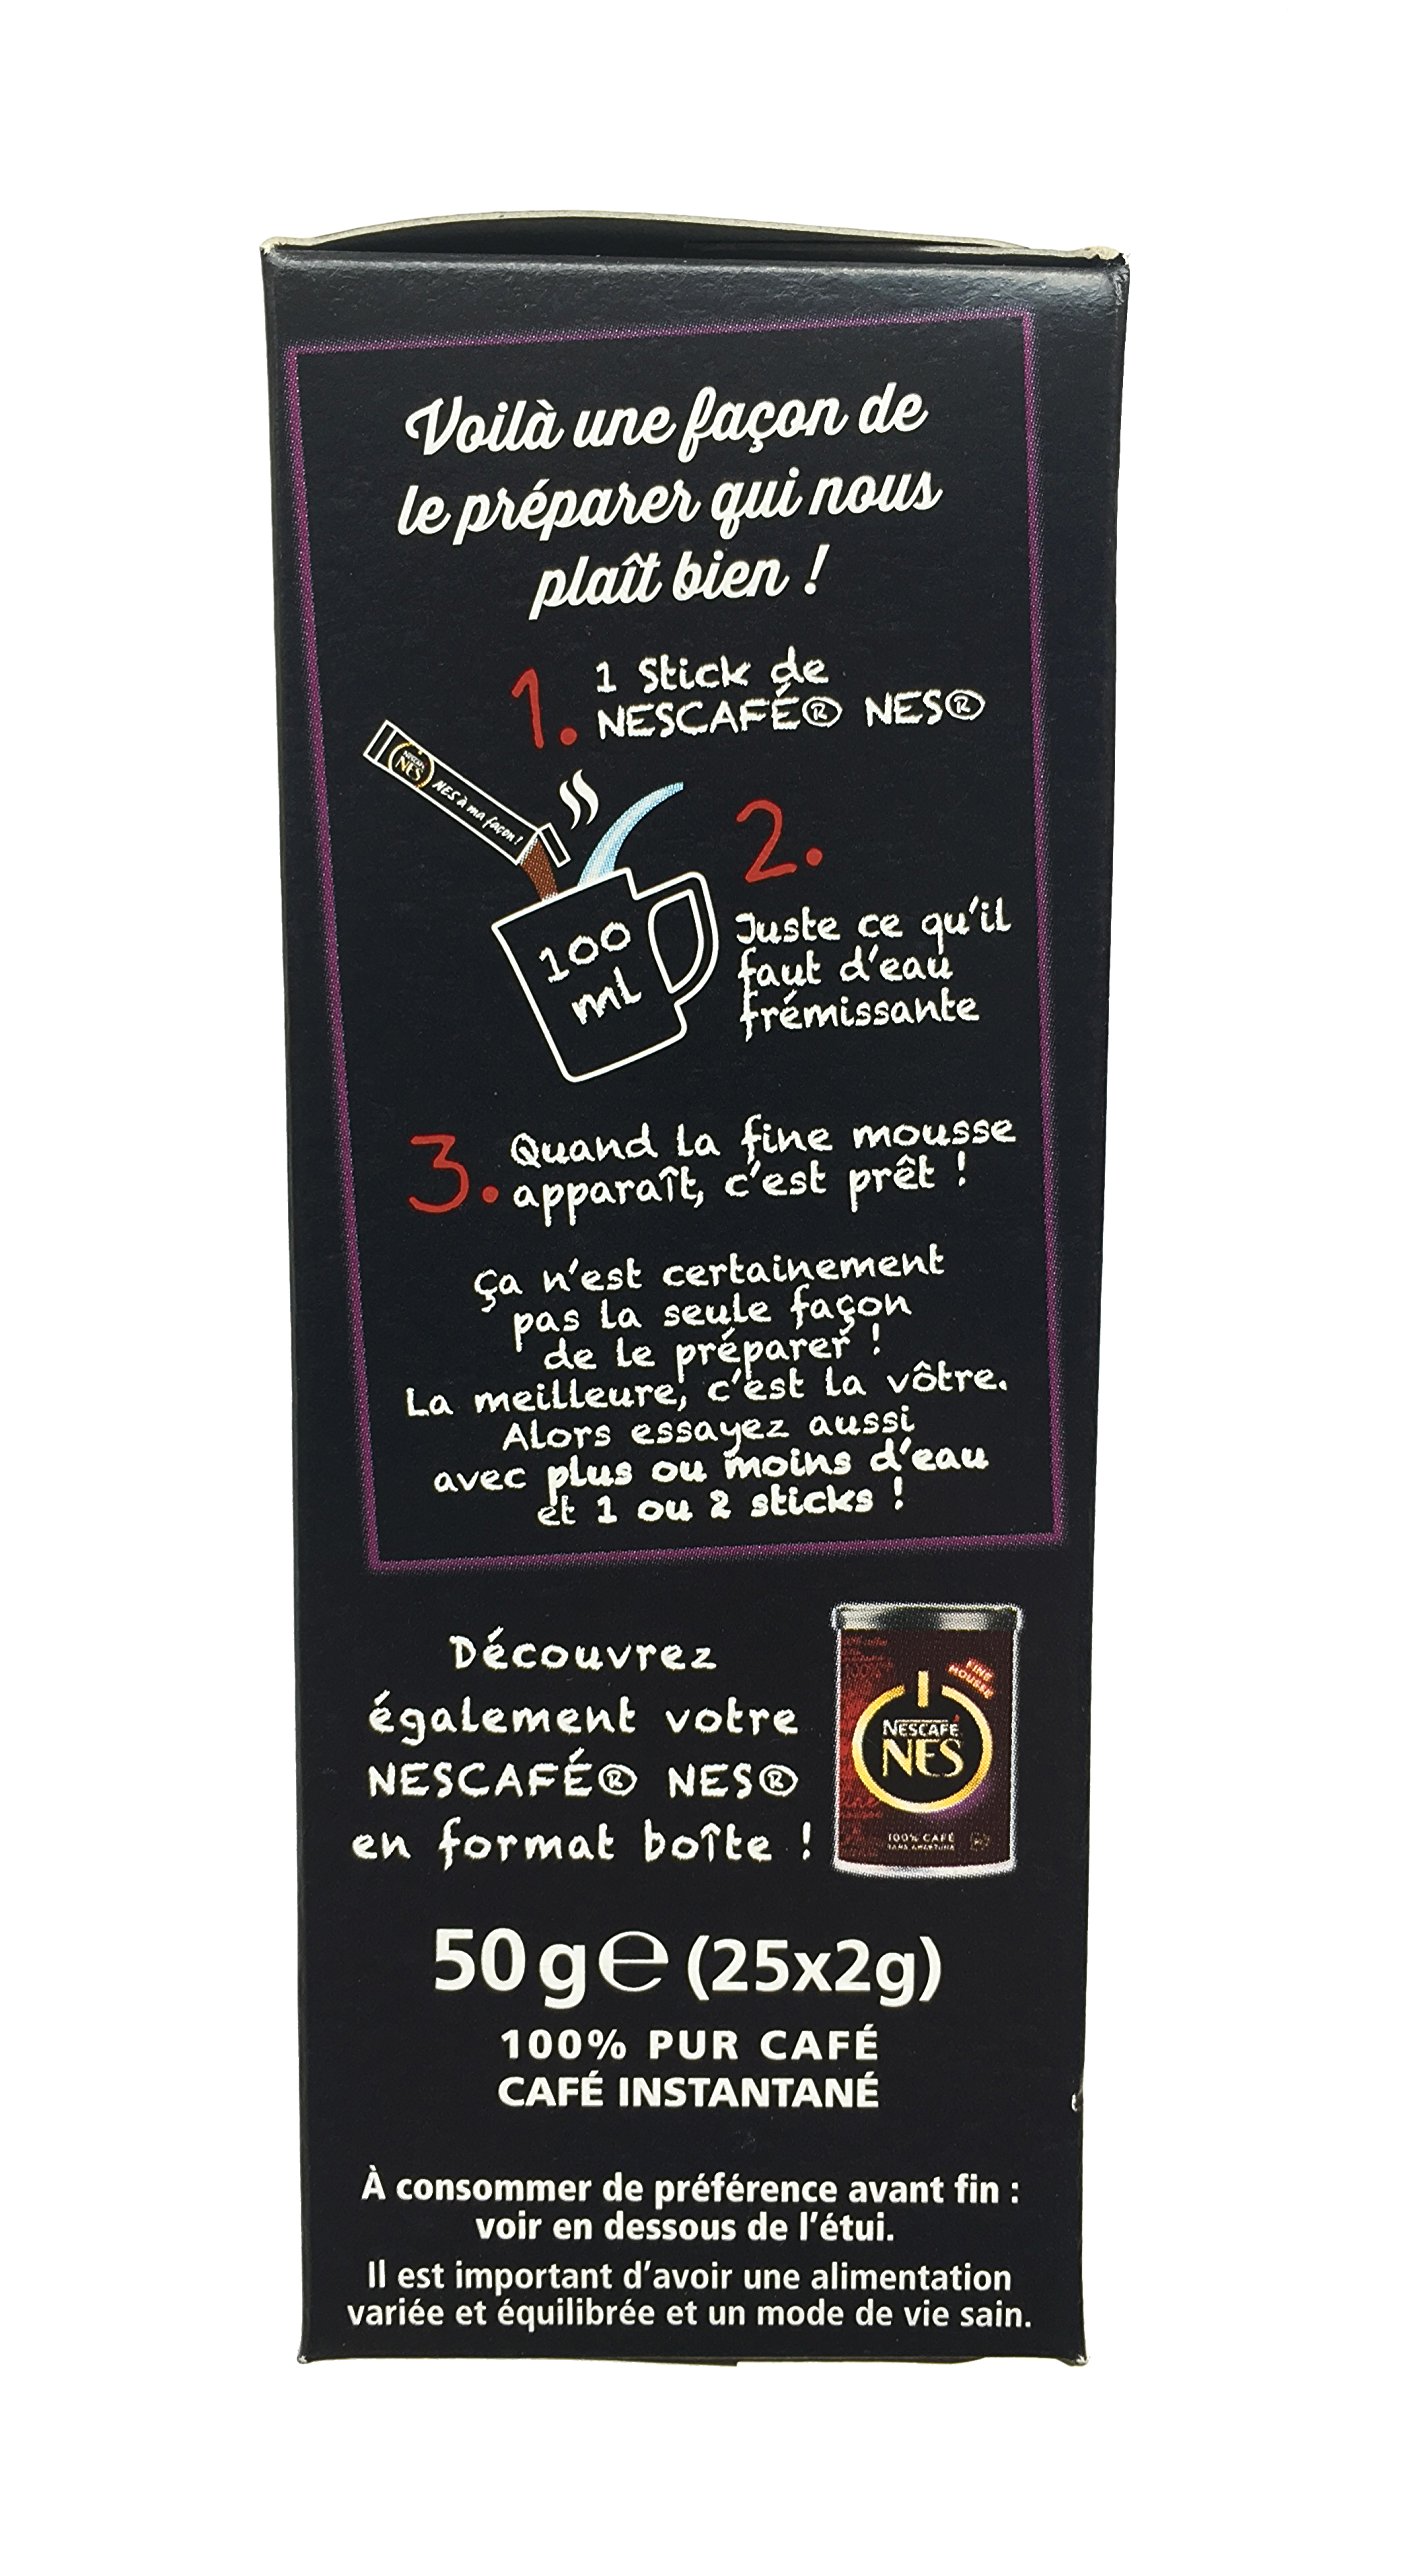 Voilà une façon de
le préparer qui nous
plaît bien !
1. 1 Stick de
NESCAFÉ® NES®
NESCAFÉ
NES
NES à ma façon !
100
ml
2.
Juste ce qu'il
faut d'eau
frémissante
3. Quand la fine mousse
apparaît, c'est prêt !
Ça n'est certainement
pas la seule façon
de le préparer !
La meilleure, c'est la vôtre.
Alors essayez aussi
avec plus ou moins d'eau
et 1 ou 2 sticks !
Découvrez
également votre
NESCAFÉ® NES®
en format boîte !
FINE
MOUSSE
NESCAFÉ
NES
100% CAFÉ
50 g e (25x2g)
100% PUR CAFÉ
CAFÉ INSTANTANÉ
À consommer de préférence avant fin :
voir en dessous de l'étui.
Il est important d'avoir une alimentation
variée et équilibrée et un mode de vie sain.